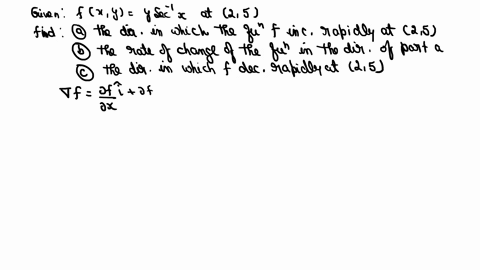 Given: f(x,y) = y Sec⁻¹ x at (2,5)
Find: (a) the dir. in which the fuⁿ f inc. rapidly at (2,5)
(b) the rate of change of the fuⁿ in the dir. of part a
(c) the dir. in which f dec. rapidly at (2,5)
∇f = ∂f/∂x î + ∂f